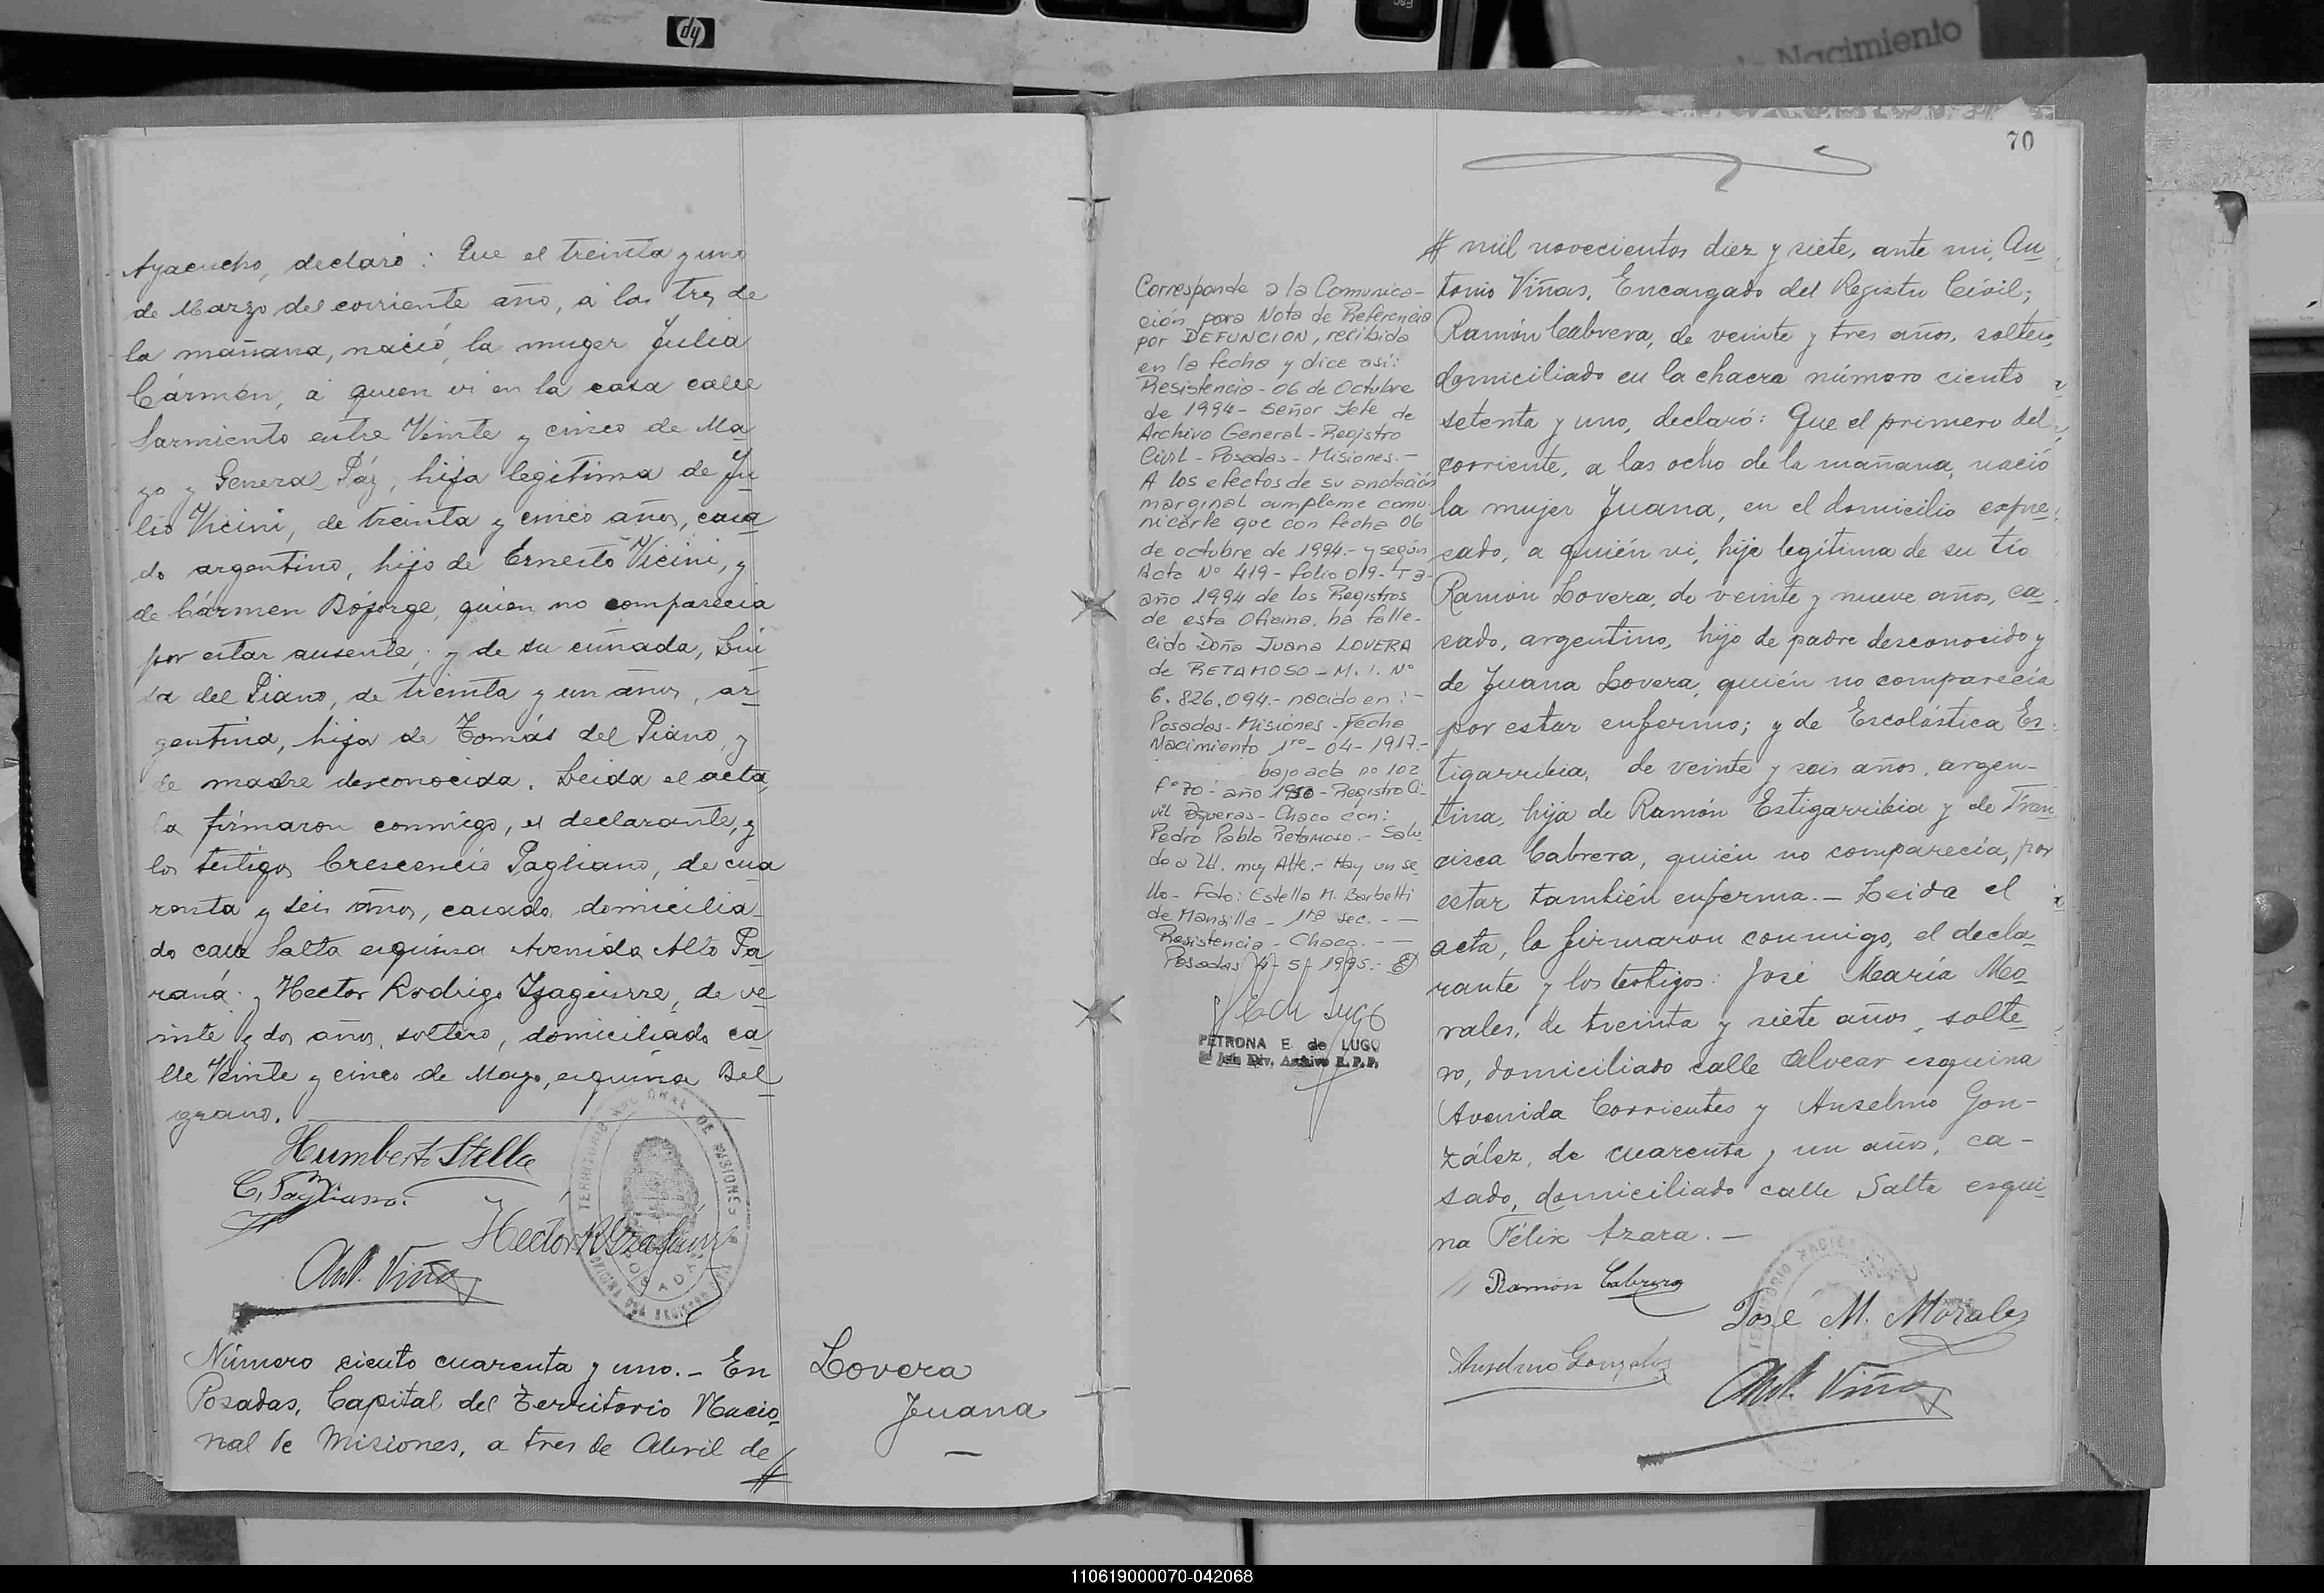 hp
ESC
de Nacimiento
Ayacucho, declaró: Que el treinta y uno
de Marzo del corriente año, á las tres de
la mañana, nació, la muger Julia
Cármen, á quien vi en la casa calle
Sarmiento entre Veinte y cinco de Ma
yo y General Páz, hija legitima de Ju
lio Vicini, de treinta y cinco años, casa
do argentino, hijo de Ernesto Vicini, y
de Cármen Bójorge, quien no comparecia
por estar ausente; y de su cuñada, Lui
sa del Piano, de treinta y un años, ar
gentina, hija de Tomás del Piano, y
de madre desconocida. Leida el acta,
la firmaron conmigo, el declarante, y
los testigos Crescencio Pagliano, de cua
renta y seis años, casado, domicilia
do calle Salta esquina Avenida Alto Pa
raná; y Hector Rodrigo Yzaguirre, de ve
inte y dos años, soltero, domiciliado ca
lle Veinte y cinco de Mayo, esquina Bel
grano.
Humberto Stella
C. Pagliano.
Hector R Yzaguirre
Ant. Viñas
TERRITORIO NACIONAL DE MISIONES
OFICINA DEL REGISTRO CIVIL
POSADAS
Número ciento cuarenta y uno.- En
Posadas, Capital del Territorio Nacio
nal de Misiones, a tres de Abril de
#
Lovera
Juana
70
Corresponde a la Comunica-
ción para Nota de Referencia
por DEFUNCION, recibida
en la fecha y dice así:
Resistencia - 06 de Octubre
de 1994 - Señor Jefe de
Archivo General - Registro
Civil - Posadas - Misiones.-
A los efectos de su anotación
marginal cumpleme comu-
nicarle que con fecha 06
de octubre de 1994.- y según
Acta Nº 419 - folio 019 - T 3-
año 1994 de los Registros
de esta Oficina, ha falle-
cido Doña Juana LOVERA
de RETAMOSO - M. I. Nº
6.826.094.- nacido en:-
Posadas - Misiones - Fecha
Nacimiento 1ro - 04 - 1917.-
bajo acta no 102
fº 70 - año - Registro Ci-
vil - Chaco con:
Pedro Pablo Retamoso.- Salu
do a Ud. muy Atte.- Hay un se
llo - Fdo: Estella M. Barbetti
de Mansilla - 1ra sec. - —
Resistencia - Chaco. - —
Posadas 4 - 5 - 1995.-
PETRONA E. de LUGO
Jefe Div. Archivo R. P. P.
# mil novecientos diez y siete, ante mi, An
tonio Viñas, Encargado del Registro Civil;
Ramón Cabrera, de veinte y tres años, soltero,
domiciliado en la chacra número ciento
setenta y uno, declaró: Que el primero del
corriente, a las ocho de la mañana, nació
la mujer Juana, en el domicilio expre
sado, a quién vi, hija legítima de su tío
Ramón Lovera, de veinte y nueve años, ca
sado, argentino, hijo de padre desconocido y
de Juana Lovera, quién no comparecía
por estar enfermo; y de Escolástica Es
tigarribia, de veinte y seis años, argen-
tina, hija de Ramón Estigarribia y de Fran
cisca Cabrera, quién no comparecía, por
estar también enferma.- Leida el
acta, la firmaron conmigo, el decla
rante y los testigos: José María Mo
rales, de treinta y siete años, solte
ro, domiciliado calle Alvear esquina
Avenida Corrientes y Anselmo Gon-
zález, de cuarenta y un años, ca-
sado, domiciliado calle Salta esqui
na Félix Azara.-
Ramón Cabrera
José M. Morales
Anselmo Gonzalez
Ant. Viñas
110619000070-042068